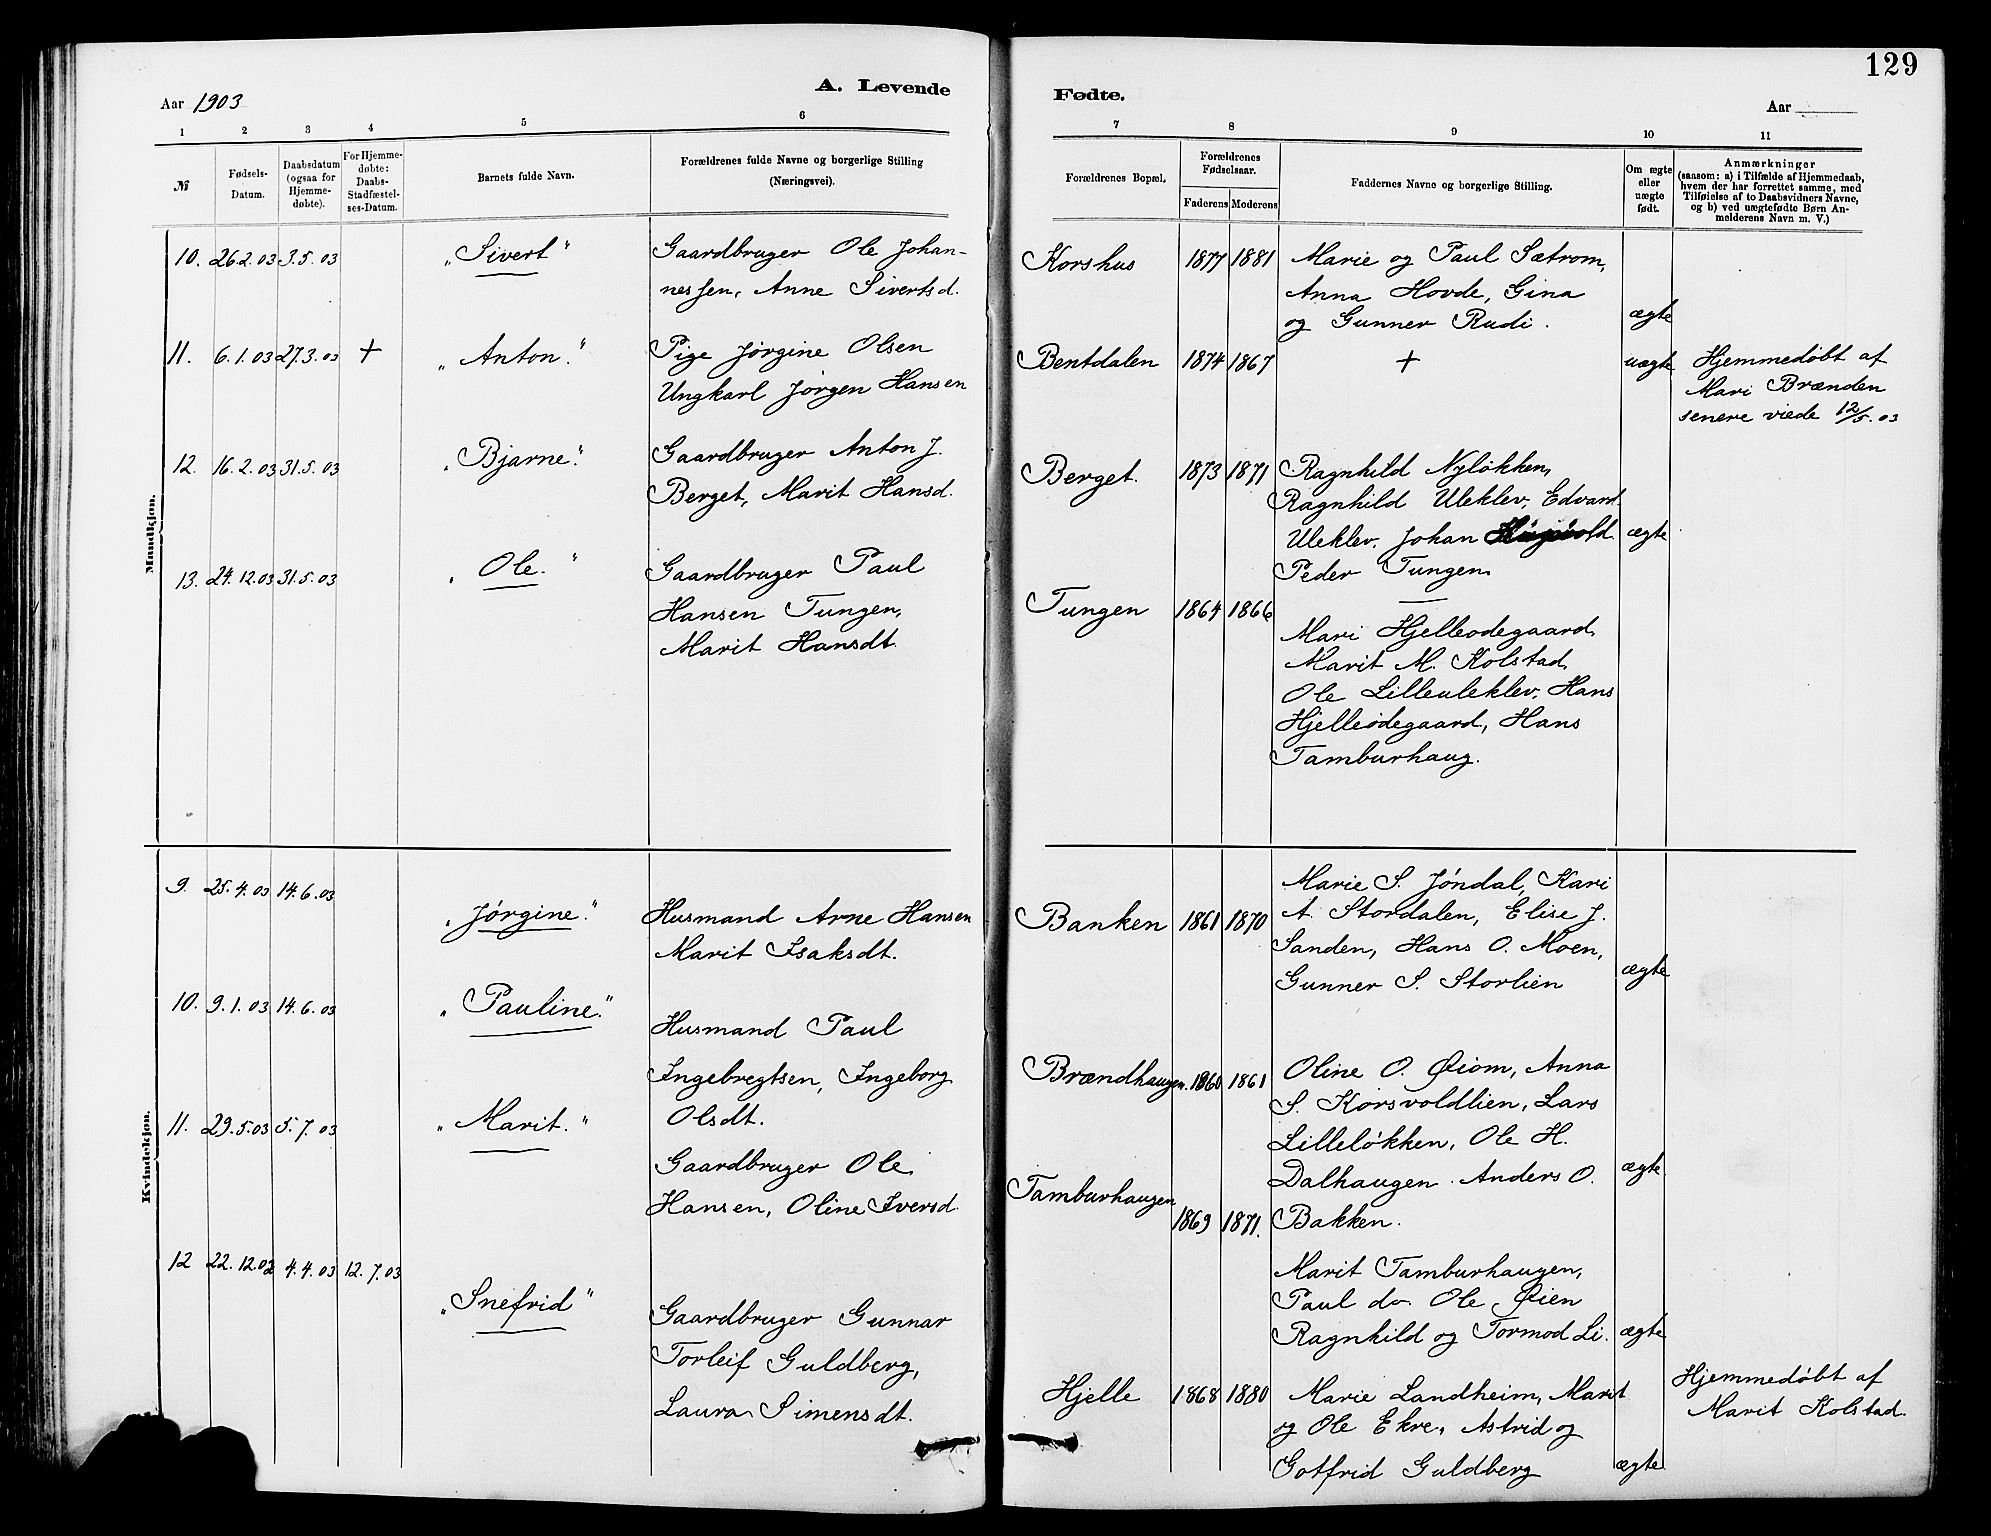 129
Aar 1903
A. Levende
Fødte.
Aar
1 2 3 4 5 6 7 8 9 10 11
№
Fødsels-
Datum.
Daabsdatum
(ogsaa for
Hjemme-
døbte).
For Hjemme-
døbte:
Daabs-
Stadfæstel-
ses-Datum.
Barnets fulde Navn.
Forældrenes fulde Navne og borgerlige Stilling
(Næringsvei).
Forældrenes Bopæl.
Forældrenes
Fødselsaar.
Faderens Moderens
Faddernes Navne og borgerlige Stilling.
Om ægte
eller
uægte
født.
Anmærkninger
(saasom: a) i Tilfælde af Hjemmedaab,
hvem der har forrettet samme, med
Tilføielse af to Daabsvidners Navne,
og b) ved uægtefødte Børn An-
melderens Navn m. V.)
Mandkjøn.
10. 26.2.03 3.5.03 „Sivert“
Gaardbruger Ole Johan-
nessen, Anne Sivertsd.
Korshus 1877 1881
Marie og Paul Sætrom,
Anna Hovde, Gina
og Gunner Rudi.
ægte
11. 6.1.03 27.3.03 + „Anton.“
Pige Jørgine Olsen
Ungkarl Jørgen Hansen
Bentdalen 1874 1867 + uægte
Hjemmedøbt af
Mari Brænden
senere viede 12/5.03
12. 16.2.03 31.5.03 „Bjarne.“
Gaardbruger Anton J.
Berget, Marit Hansd.
Berget. 1873 1871
Ragnhild Nyløkken,
Ragnhild Uleklev, Edvard
Uleklev, Johan
Peder Tungen
ægte
13. 24.12.03 31.5.03 „Ole.“
Gaardbruger Paul
Hansen Tungen,
Marit Hansdt.
Tungen 1864 1866
Mari Hjelleødegaard,
Marit M. Kolstad,
Ole Lilleuleklev, Hans
Hjelleødegaard, Hans
Tamburhaug.
Kvindekjøn.
9. 25.4.03 14.6.03 „Jørgine.“
Husmand Arne Hansen
Marit Isaksdt.
Banken 1861 1870
Marie S. Jøndal, Kari
A. Stordalen, Elise J.
Sanden, Hans O. Moen,
Gunner S. Storlien
ægte
10. 9.1.03 14.6.03 „Pauline.“
Husmand Paul
Ingebregtsen, Ingeborg
Olsdt.
Brændhaugen. 1860 1861
Oline O. Øiom, Anna
S. Korsvoldlien, Lars
Lilleløkken, Ole H.
Dalhaugen. Anders O.
Bakken.
ægte
11. 29.5.03 5.7.03 „Marit.“
Gaardbruger Ole
Hansen, Oline Iversd.
Tamburhaugen 1869 1871.
Marit Tamburhaugen,
Paul do. Ole Øien
Ragnhild og Tormod Li.
ægte
12 22.12.02 4.4.03 12.7.03 „Snefrid“
Gaardbruger Gunnar
Torleif Guldberg,
Laura Simensdt.
Hjelle 1868 1880
Marie Landheim, Marit
og Ole Ekre, Astrid og
Gotfrid Guldberg
ægte
Hjemmedøbt af
Marit Kolstad.